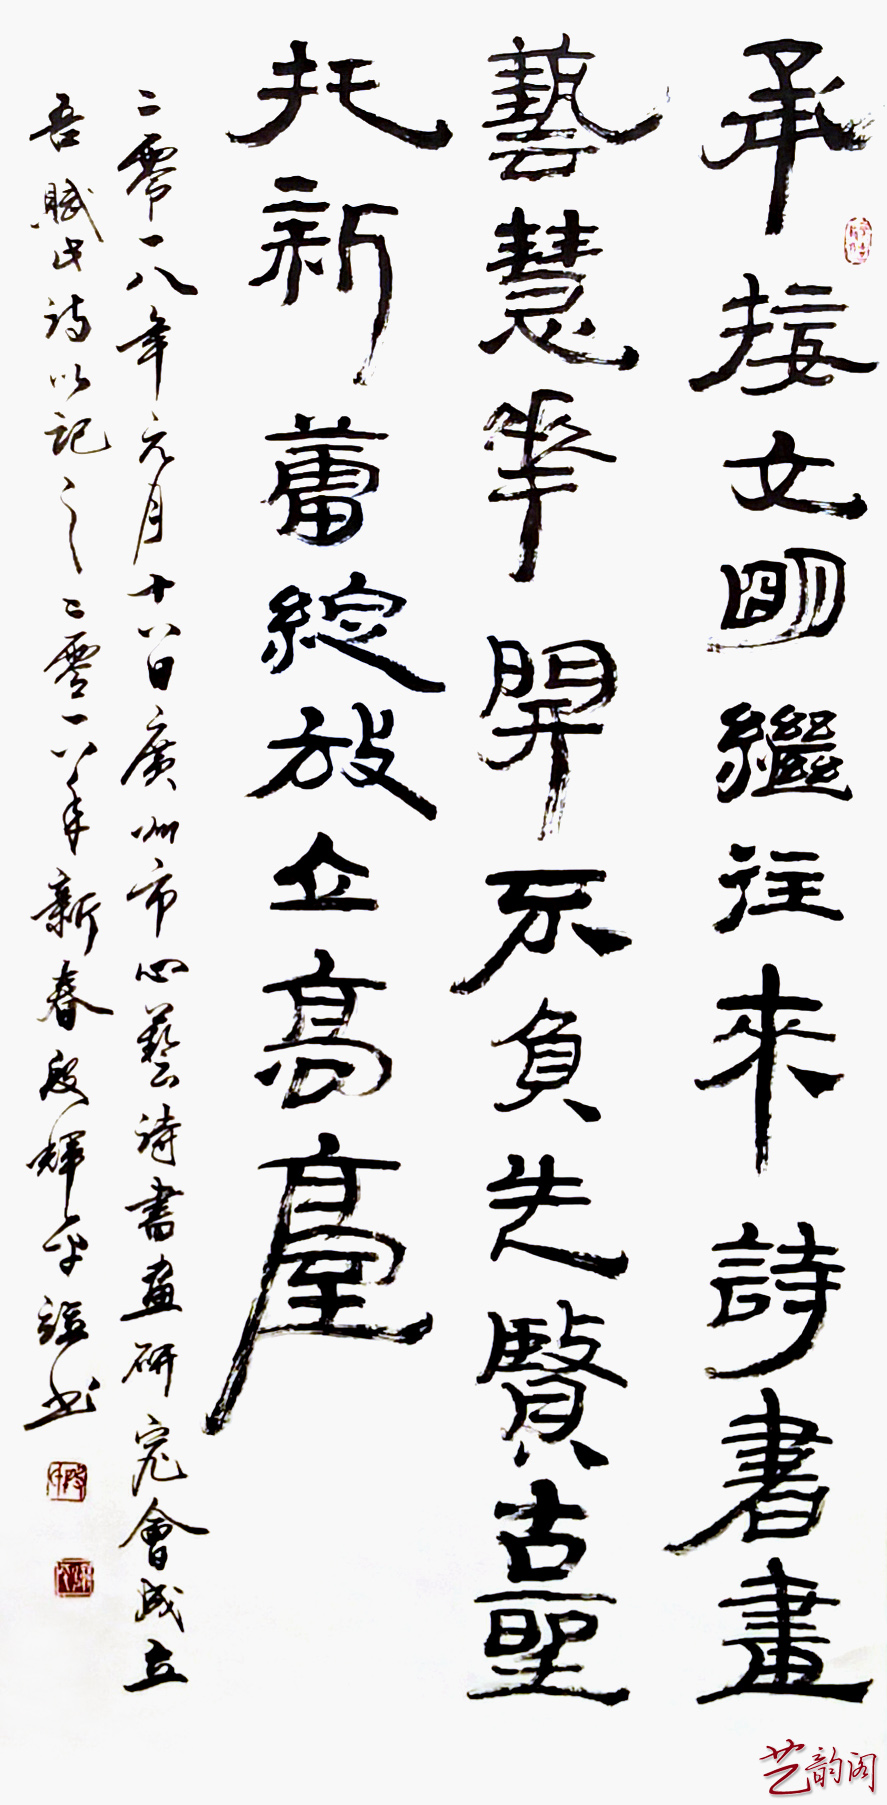 承接文明繼往來詩書畫
藝慧華開不負先賢古聖
托新蕾綻放立高臺
二零一八年元月十八日廣州市心藝詩書畫研究會成立
吾賦此詩以記之二零一八年新春殷輝平詩書
艺韵阁